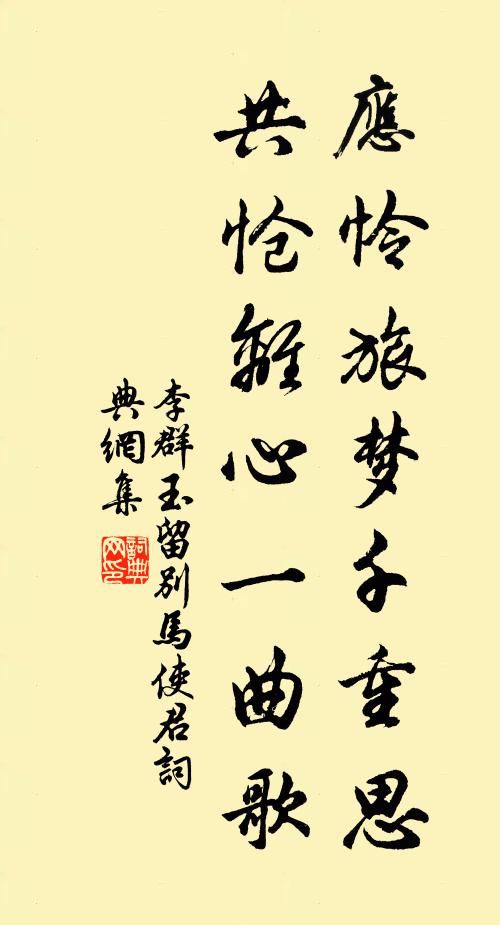 應怜旅梦千重思
共怆離心一曲歌
李群玉留别馬使君詞
典網集
詞典
网印